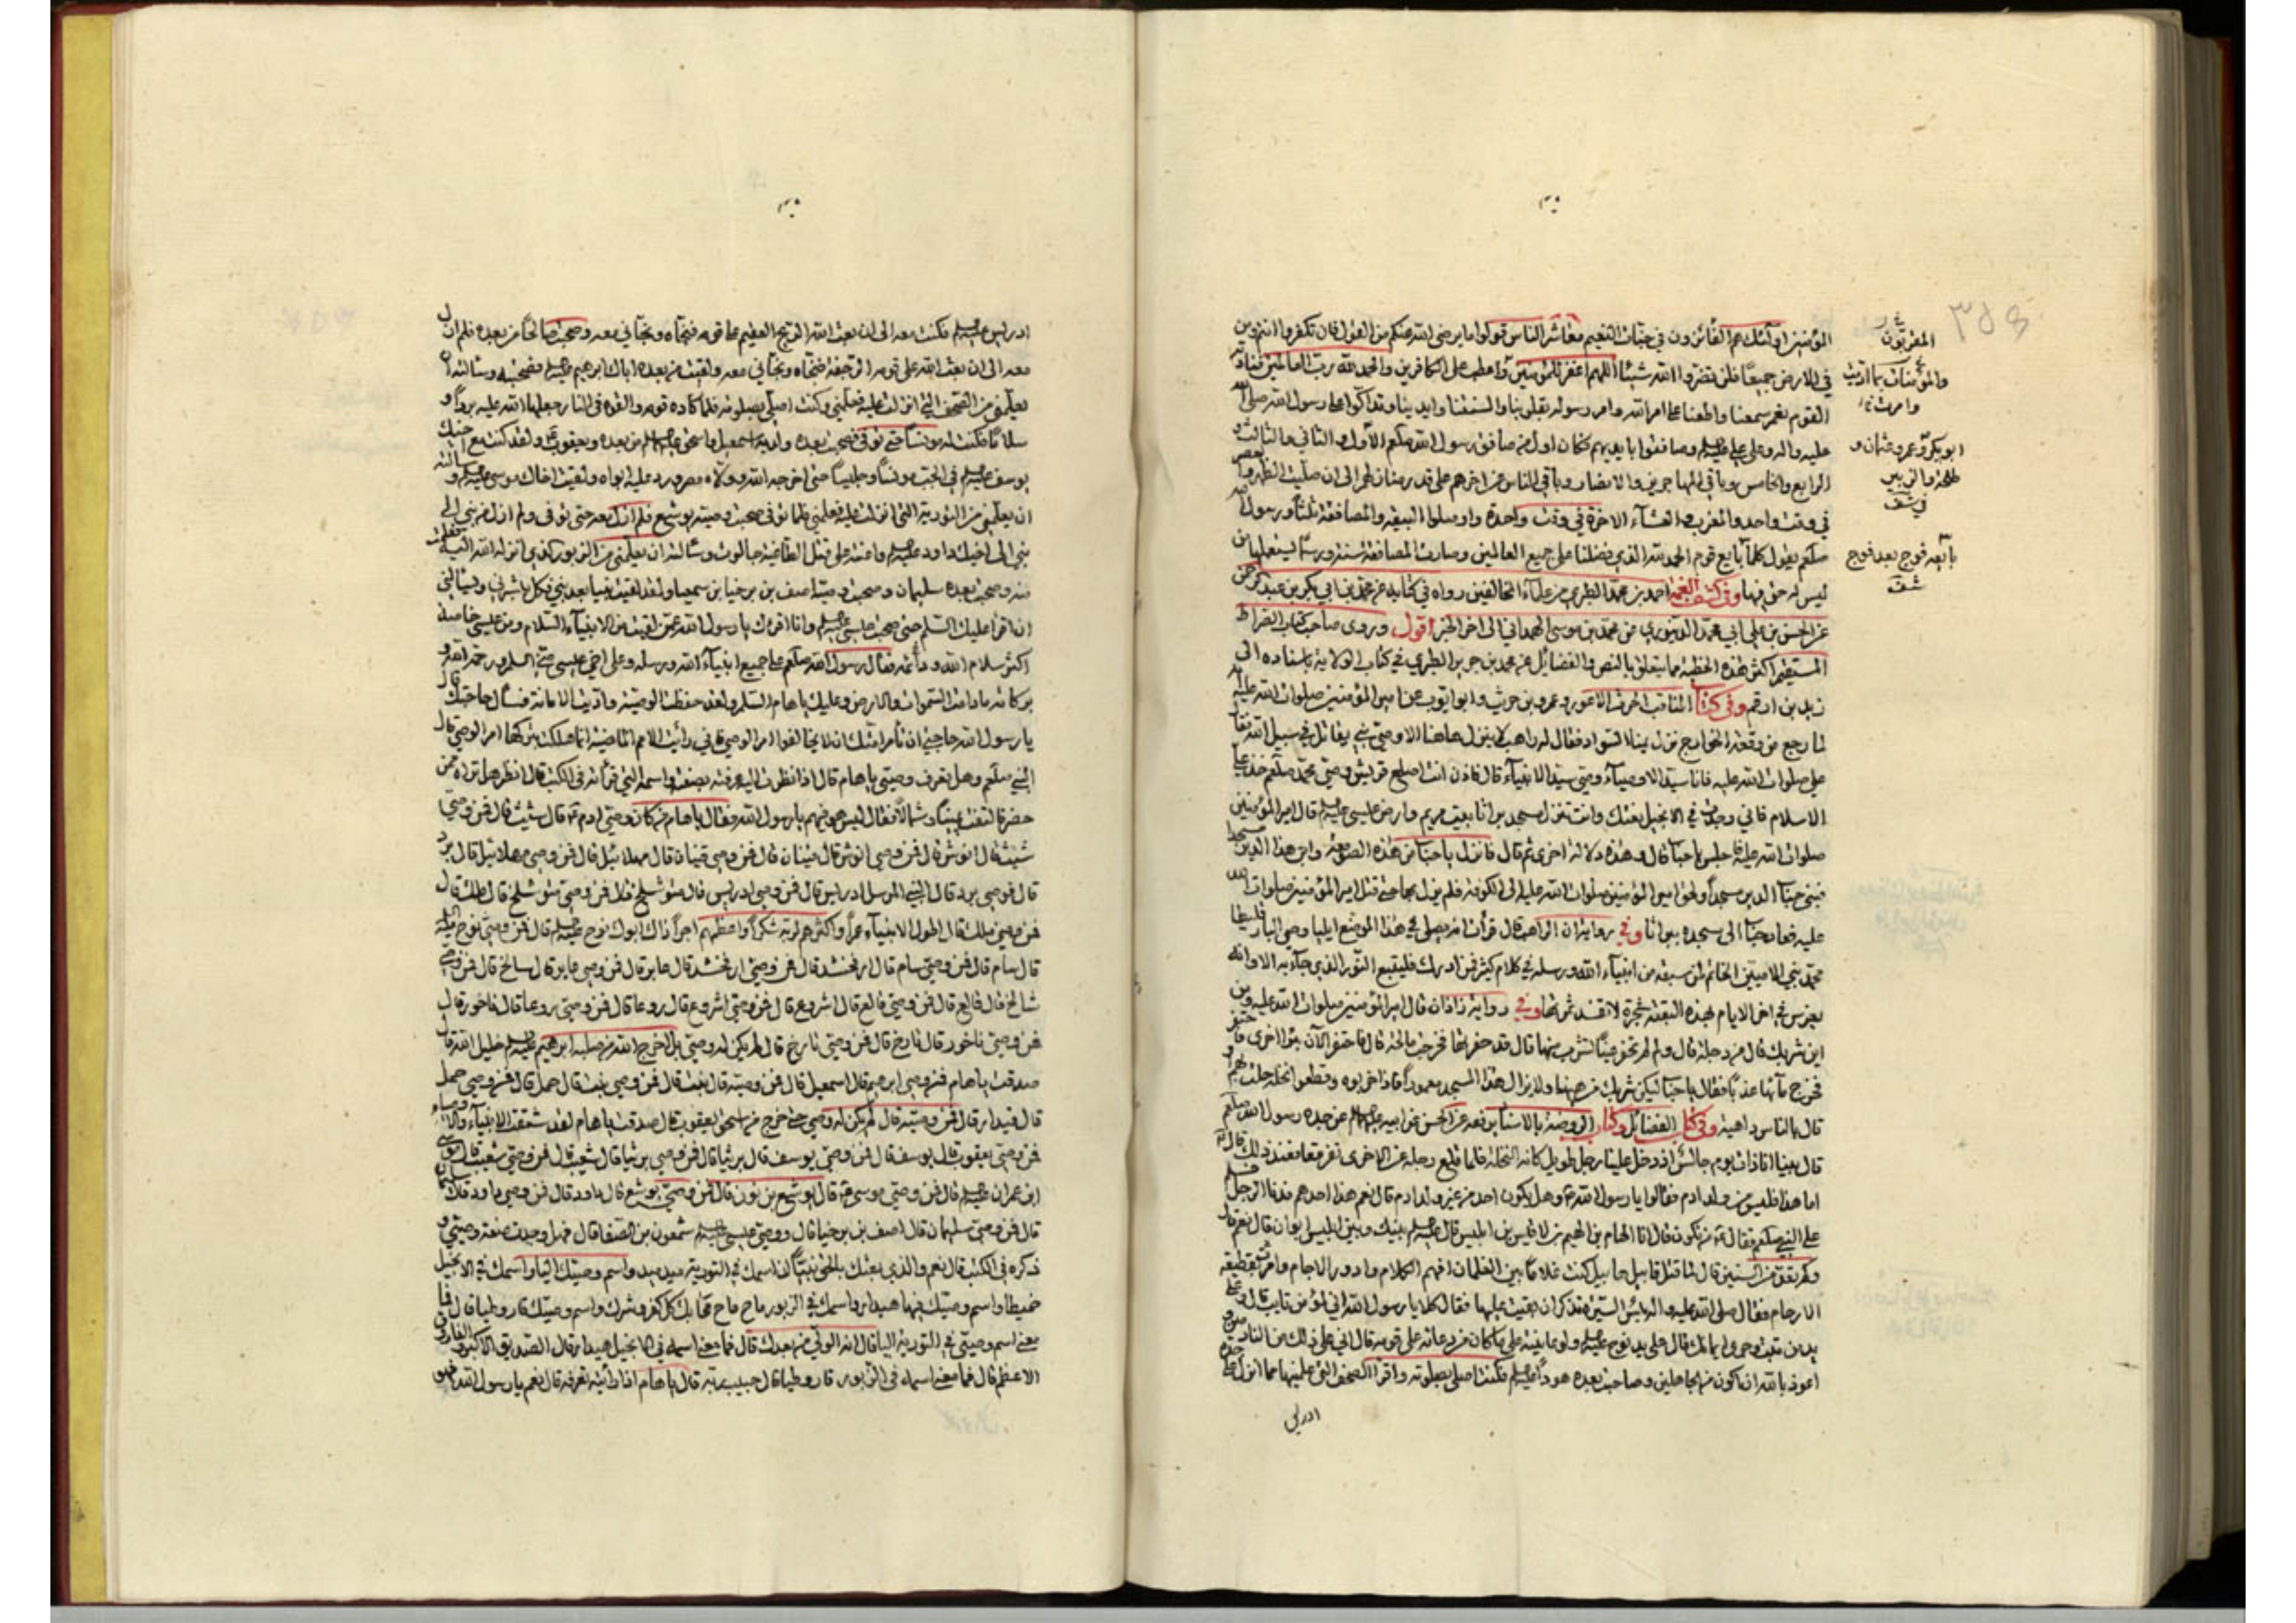 المؤمنين اولئك هم الفائزون في جنات النعيم معاشر الناس قولوا ما يرضى الله عنكم من القول فان تكفروا انتم ومن
في الارض جميعا فلن تضروا الله شيئا اللهم اغفر للمؤمنين واعطب على الكافرين والحمد لله رب العالمين فناداه
القوم نعم سمعنا واطعنا على امر الله وامر رسوله بقلوبنا والسنتنا وايدينا وتداكوا على رسول الله صلى الله
عليه واله وعلى علي عليه السلم وصافقوا بايديهم فكان اول من صافق رسول الله صلعم الاول والثاني والثالث و
الرابع والخامس وباقي المهاجرين والانصار وباقي الناس عن اخرهم على قدر منازلهم الى ان صليت الظهر والعصر
في وقت واحد والمغرب والعشاء الاخرة في وقت واحد واوصلوا البيعة والمصافقة ثلثا ورسول الله
صلعم يقول كلما بايع قوم الحمد لله الذي فضلنا على جميع العالمين وصارت المصافقة سنة ورسما يستعملها من
ليس له حق فيها وفي كشف احمد بن محمد الطبري من علماء المخالفين رواه في كتابه عن محمد بن ابي بكر بن عبد الرحمن
عن الحسن بن علي ابي محمد الدينوري عن محمد بن موسى الهمداني الى اخر الخبر اقول وروى صاحب كتاب الصراط
المستقيم اكثر هذه الخطبة مما يتعلق بالنص والفضائل عن محمد بن جرير الطبري في كتاب الولاية باسناده الى
زيد بن ارقم وفي كتاب المناقب الحرث الاعور وعمرو بن حريث وابو ايوب عن امير المؤمنين صلوات الله عليه انه
لما رجع من وقعة الخوارج نزل يمنا السواد فقال له راهب لا ينزل هاهنا الا وصي نبي يقاتل في سبيل الله فقال
علي صلوات الله عليه فانا سيد الاوصياء وصي سيد الانبياء قال فاذن انت اصلع قريش وصي محمد صلعم خذ علي
الاسلام فاني وجدت في الانجيل نعتك وانت تنزل مسجد براثا بيت مريم وارض عيسى عليه السلم قال امير المؤمنين
صلوات الله عليه فاجلس يا حباب قال وهذه دلالة اخرى ثم قال فانزل يا حباب من هذه الصومعة وابن هذا الدير مسجدا
فبنى حباب الدير مسجدا ولحق امير المؤمنين صلوات الله عليه الى الكوفة فلم يزل بها حتى قتل امير المؤمنين صلوات الله
عليه فعاد حباب الى مسجده ببراثا وفي رواية ان الراهب قال قرأت انه يصلي في هذا الموضع ايليا وصي البارقليطا
محمد نبي الاميين الخاتم لمن سبقه من انبياء الله ورسله في كلام كثير فمن ادركه فليتبع النور الذي جاء به الا وانه
يغرس في اخر الايام بهذه البقعة شجرة لا يفسد ثمرتها وفي رواية زاذان قال امير المؤمنين صلوات الله عليه ومن
اين شربك قال من دجلة قال ولم لم تحفر عينا تشرب منها قال قد حفرتها فخرجت مالحة قال فاحتفر الآن بئرا اخرى فاحتفر
فخرج ماؤها عذبا فقال يا حباب ليكن شربك من هيهنا ولا يزال هذا المسجد معمورا فاذا خربوه وقطعوا نخله حلت بهم او
قال بالناس داهية وفي كتاب الفضائل وكتاب الروضة بالاسناد يرفعه عن الحسن عن ابيه عليهم السلم عن جده رسول الله صلعم
قال بينما انا ذات يوم جالس اذ دخل علينا رجل طويل كانه النخلة فلما قلع رجله عن الاخرى تفرقعا فعند ذلك قال ع
اما هذا فليس من ولد ادم فقالوا يا رسول الله وهل يكون احد من غير ولد ادم قال نعم هذا احدهم فدنا الرجل فسلم
على النبي صلعم فقال من تكون قال انا الهام بن الهيم بن لاقيس بن ابليس قال عليه السلم بينك وبين ابليس ابوان قال نعم قال
وكم تعد من السنين قال لما قتل قابيل هابيل كنت غلاما بين الغلمان افهم الكلام وادور الاجام وامر بقطيعة
الارحام فقال صلى الله عليه واله بئس السيرة تذكر ان بقيت عليها فقال كلا يا رسول الله اني لمؤمن تائب قال وعلى
يد من تبت وجرى ايمانك قال على يد نوح عليه السلم وعاتبته على ما كان من دعائه على قومه قال اني على ذلك من النادمين و
اعوذ بالله ان اكون من الجاهلين وصاحبت بعده هودا عليه السلم فكنت اصلي بصلوته واقرا الصحف التي علمنيها مما انزل على جده
ادريس
المقربون
والمؤمنات بما اديت
وامرت
ابو بكر وعمر وعثمان و
طلحة والزبير
بايعه فوج بعد فوج
ادريس عليه السلم فكنت معه الى ان بعث الله الريح العقيم على قومه فنجاه ونجاني معه وصحبت صالحا من بعده فلم ازل
معه الى ان بعث الله على قومه الرجفة فنجاه ونجاني معه ولقيت من بعده اباك ابرهيم عليه السلم فصحبته وسالته ان
يعلمني من الصحف التي انزلت عليه فعلمني وكنت اصلي بصلوته فلما كاده قومه والقوه في النار جعلها الله عليه بردا و
سلاما فكنت له مونسا حتى توفي فصحبت بعده ولديه اسمعيل واسحق عليهم السلم من بعده ويعقوب ع ولقد كنت مع اخيك
يوسف عليه السلم في الجب مونسا وجليسا حتى اخرجه الله وولاه مصر ورد عليه ابواه ولقيت اخاك موسى عليه السلم وسالته
ان يعلمني من التورية التي انزلت عليه فعلمني فلما توفي صحبت وصيه يوشع فلم ازل معه حتى توفي ولم ازل من نبي الى
نبي الى اخيك داود عليه السلم واعنته على قتل الطاغية جالوت وسالته ان يعلمني من الزبور الذي انزله الله اليه فعلمت
منه وصحبت بعده سليمان وصحبت وصيه اصف بن برخيا بن سمعيا ولقد لقيت نبيا بعد نبي فكل يبشرني ويسالني
ان اقرا عليك السلم حتى صحبت عيسى عليه السلم وانا اقرءك يا رسول الله عمن لقيت من الانبياء السلام ومن عيسى خاصة
اكثر سلام الله واتمه فقال رسول الله صلعم على جميع انبياء الله ورسله وعلى اخي عيسى مني السلم ورحمة الله و
بركاته ما دامت السموات والارض وعليك يا هام السلم ولقد حفظت الوصية واديت الامانة فسال حاجتك قال
يا رسول الله حاجتي ان تأمر امتك ان لا يخالفوا امر الوصي فاني رأيت الامم الماضية انما هلكت بتركها امر الوصي قال
النبي صلعم وهل تعرف وصيي يا هام قال اذا نظرت اليه عرفته بصفته واسمه الذي قرأته في الكتب قال انظر هل تراه ممن
حضر فالتفت يمينا وشمالا فقال ليس هو فيهم يا رسول الله فقال يا هام من كان وصي ادم ع قال شيث قال فمن وصي
شيث قال انوش قال فمن وصي انوش قال قينان قال فمن وصي قينان قال مهلائيل قال فمن وصي مهلائيل قال برد
قال فمن وصي برد قال النبي المرسل ادريس قال فمن وصي ادريس قال متوشلخ قال فمن وصي متوشلخ قال لمك قال
فمن وصي لمك قال اطول الانبياء عمرا واكثرهم لربه شكرا واعظمهم اجرا ذاك ابوك نوح عليه السلم قال فمن وصي نوح عليه السلم
قال سام قال فمن وصي سام قال ارفخشد قال فمن وصي ارفخشد قال عابر قال فمن وصي عابر قال شالخ قال فمن وصي
شالخ قال فالغ قال فمن وصي فالغ قال اشروع قال فمن وصي اشروع قال روعا قال فمن وصي روعا قال ناخور قال
فمن وصي ناخور قال تارخ قال فمن وصي تارخ قال لم يكن له وصي بل اخرج الله من صلبه ابرهيم عليه السلم خليل الله قال
صدقت يا هام فمن وصي ابرهيم قال اسمعيل قال فمن وصيه قال نبت قال فمن وصي نبت قال حمل قال فمن وصي حمل
قال قيدار قال فمن وصيه قال لم يكن له وصي حتى خرج من اسحق يعقوب قال صدقت يا هام لقد سبقت الانبياء والاوصياء
فمن وصي يعقوب قال يوسف قال فمن وصي يوسف قال برثيا قال فمن وصي برثيا قال شعيب قال فمن وصي شعيب قال موسى
ابن عمران عليه السلم قال فمن وصي موسى ع قال يوشع بن نون قال فمن وصي يوشع قال داود قال فمن وصي داود قال سليمان
قال فمن وصي سليمان قال اصف بن برخيا قال ووصي عيسى عليه السلم شمعون بن الصفا قال فهل وجدت صفة وصيي و
ذكره في الكتب قال نعم والذي بعثك بالحق نبيا ان اسمك في التورية ميد ميد واسم وصيك اليا واسمك في الانجيل
حميطا واسم وصيك فيها هيدار واسمك في الزبور ماح ماح محي بك كل كفر وشرك واسم وصيك قاروطيا قال فما
معنى اسم وصيي في التورية اليا قال انه الولي من بعدك قال فما معنى اسمه في الانجيل هيدار قال الصديق الاكبر والفاروق
الاعظم قال فما معنى اسمه في الزبور قاروطيا قال حبيب ربه قال يا هام اذا رأيته تعرفه قال نعم يا رسول الله فهو